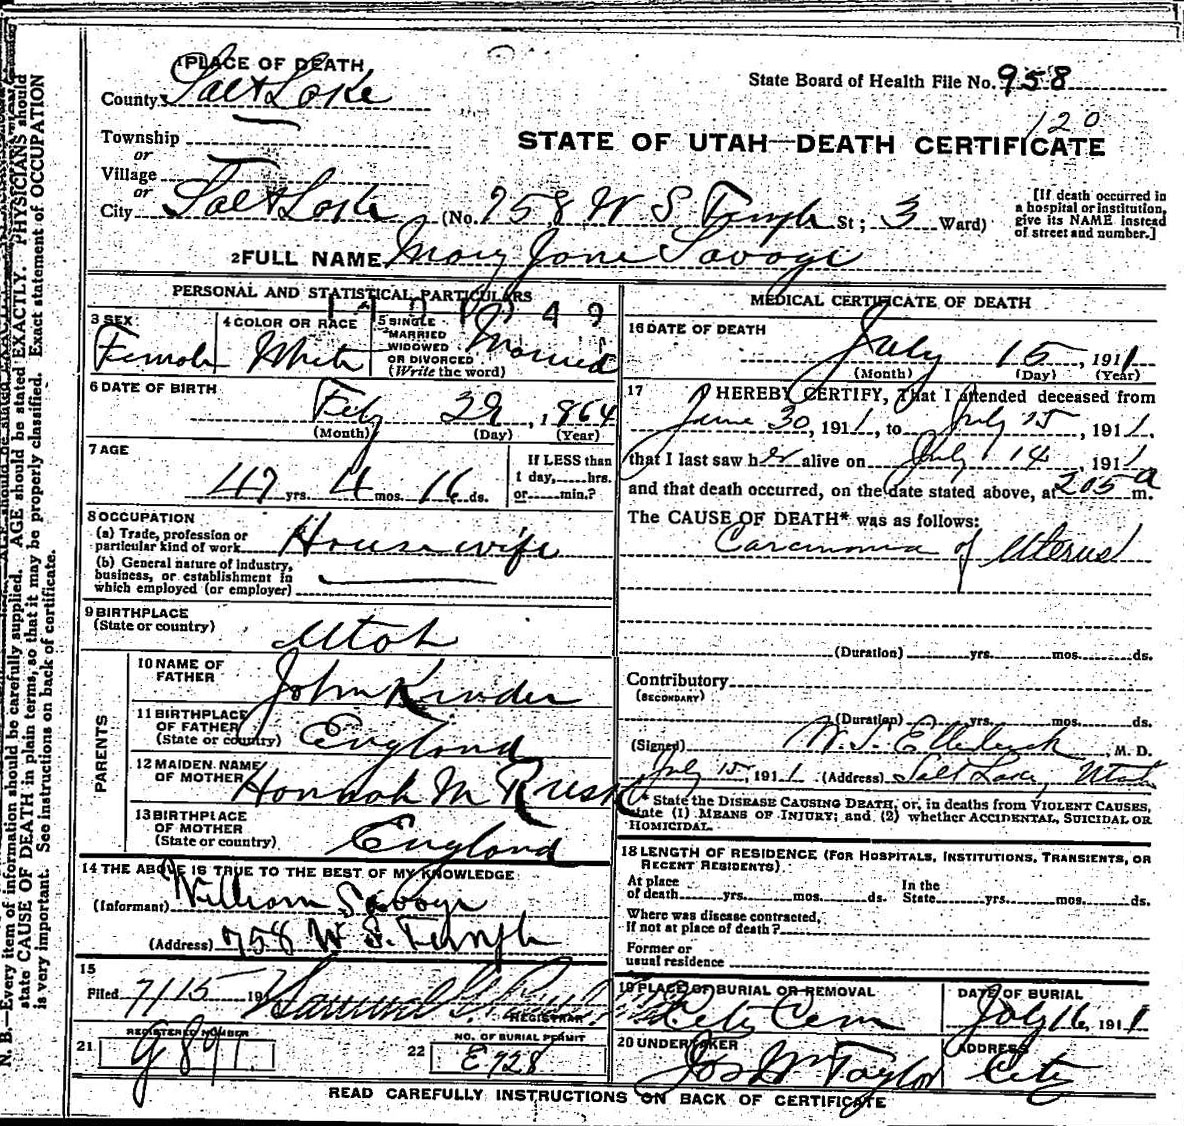 N. B.—Every item of information should be carefully supplied. AGE should be stated EXACTLY. PHYSICIANS should
state CAUSE OF DEATH in plain terms, so that it may be properly classified. Exact statement of OCCUPATION
is very important. See instructions on back of certificate.
1 PLACE OF DEATH
County Salt Lake
State Board of Health File No. 958
120
Township
or
Village
or
STATE OF UTAH—DEATH CERTIFICATE
City Salt Lake (No. 758 W S Temple St; 3 Ward)
[If death occurred in
a hospital or institution,
give its NAME instead
of street and number.]
2 FULL NAME Mary Jane Savage
PERSONAL AND STATISTICAL PARTICULARS
3 SEX Female
4 COLOR OR RACE White
5 SINGLE
MARRIED
WIDOWED
OR DIVORCED
(Write the word) Married
6 DATE OF BIRTH
Feb 29, 1864
(Month) (Day) (Year)
7 AGE
47 yrs. 4 mos. 16 ds.
If LESS than
1 day, hrs.
or min.?
8 OCCUPATION
(a) Trade, profession or
particular kind of work House wife
(b) General nature of industry,
business, or establishment in
which employed (or employer)
9 BIRTHPLACE
(State or country) Utah
PARENTS
10 NAME OF
FATHER John Kinder
11 BIRTHPLACE
OF FATHER
(State or country) England
12 MAIDEN NAME
OF MOTHER Hannah M
13 BIRTHPLACE
OF MOTHER
(State or country) England
14 THE ABOVE IS TRUE TO THE BEST OF MY KNOWLEDGE
(Informant) William Savage
(Address) 758 W S. Temple
15
Filed 7/15 191 Samuel G.
REGISTRAR
REGISTERED NUMBER
21 G 891
NO. OF BURIAL PERMIT
22 E 928
MEDICAL CERTIFICATE OF DEATH
16 DATE OF DEATH
July 15, 1911
(Month) (Day) (Year)
17 I HEREBY CERTIFY, That I attended deceased from
June 30, 1911, to July 15, 1911,
that I last saw her alive on July 14, 1911
and that death occurred, on the date stated above, at 205 a m.
The CAUSE OF DEATH* was as follows:
Carcinoma of Uterus
(Duration) yrs. mos. ds.
Contributory
(SECONDARY)
(Duration) yrs. mos. ds.
(Signed) W. S. M. D.
July 15, 1911 (Address) Salt Lake, Utah
* State the DISEASE CAUSING DEATH, or, in deaths from VIOLENT CAUSES,
state (1) MEANS OF INJURY; and (2) whether ACCIDENTAL, SUICIDAL OR
HOMICIDAL.
18 LENGTH OF RESIDENCE (FOR HOSPITALS, INSTITUTIONS, TRANSIENTS, OR
RECENT RESIDENTS)
At place
of death yrs. mos. ds.
In the
State yrs. mos. ds.
Where was disease contracted,
if not at place of death?
Former or
usual residence
19 PLACE OF BURIAL OR REMOVAL
City Cem
DATE OF BURIAL
July 16, 1911
20 UNDERTAKER
Jos Wm Taylor
ADDRESS
City
READ CAREFULLY INSTRUCTIONS ON BACK OF CERTIFICATE